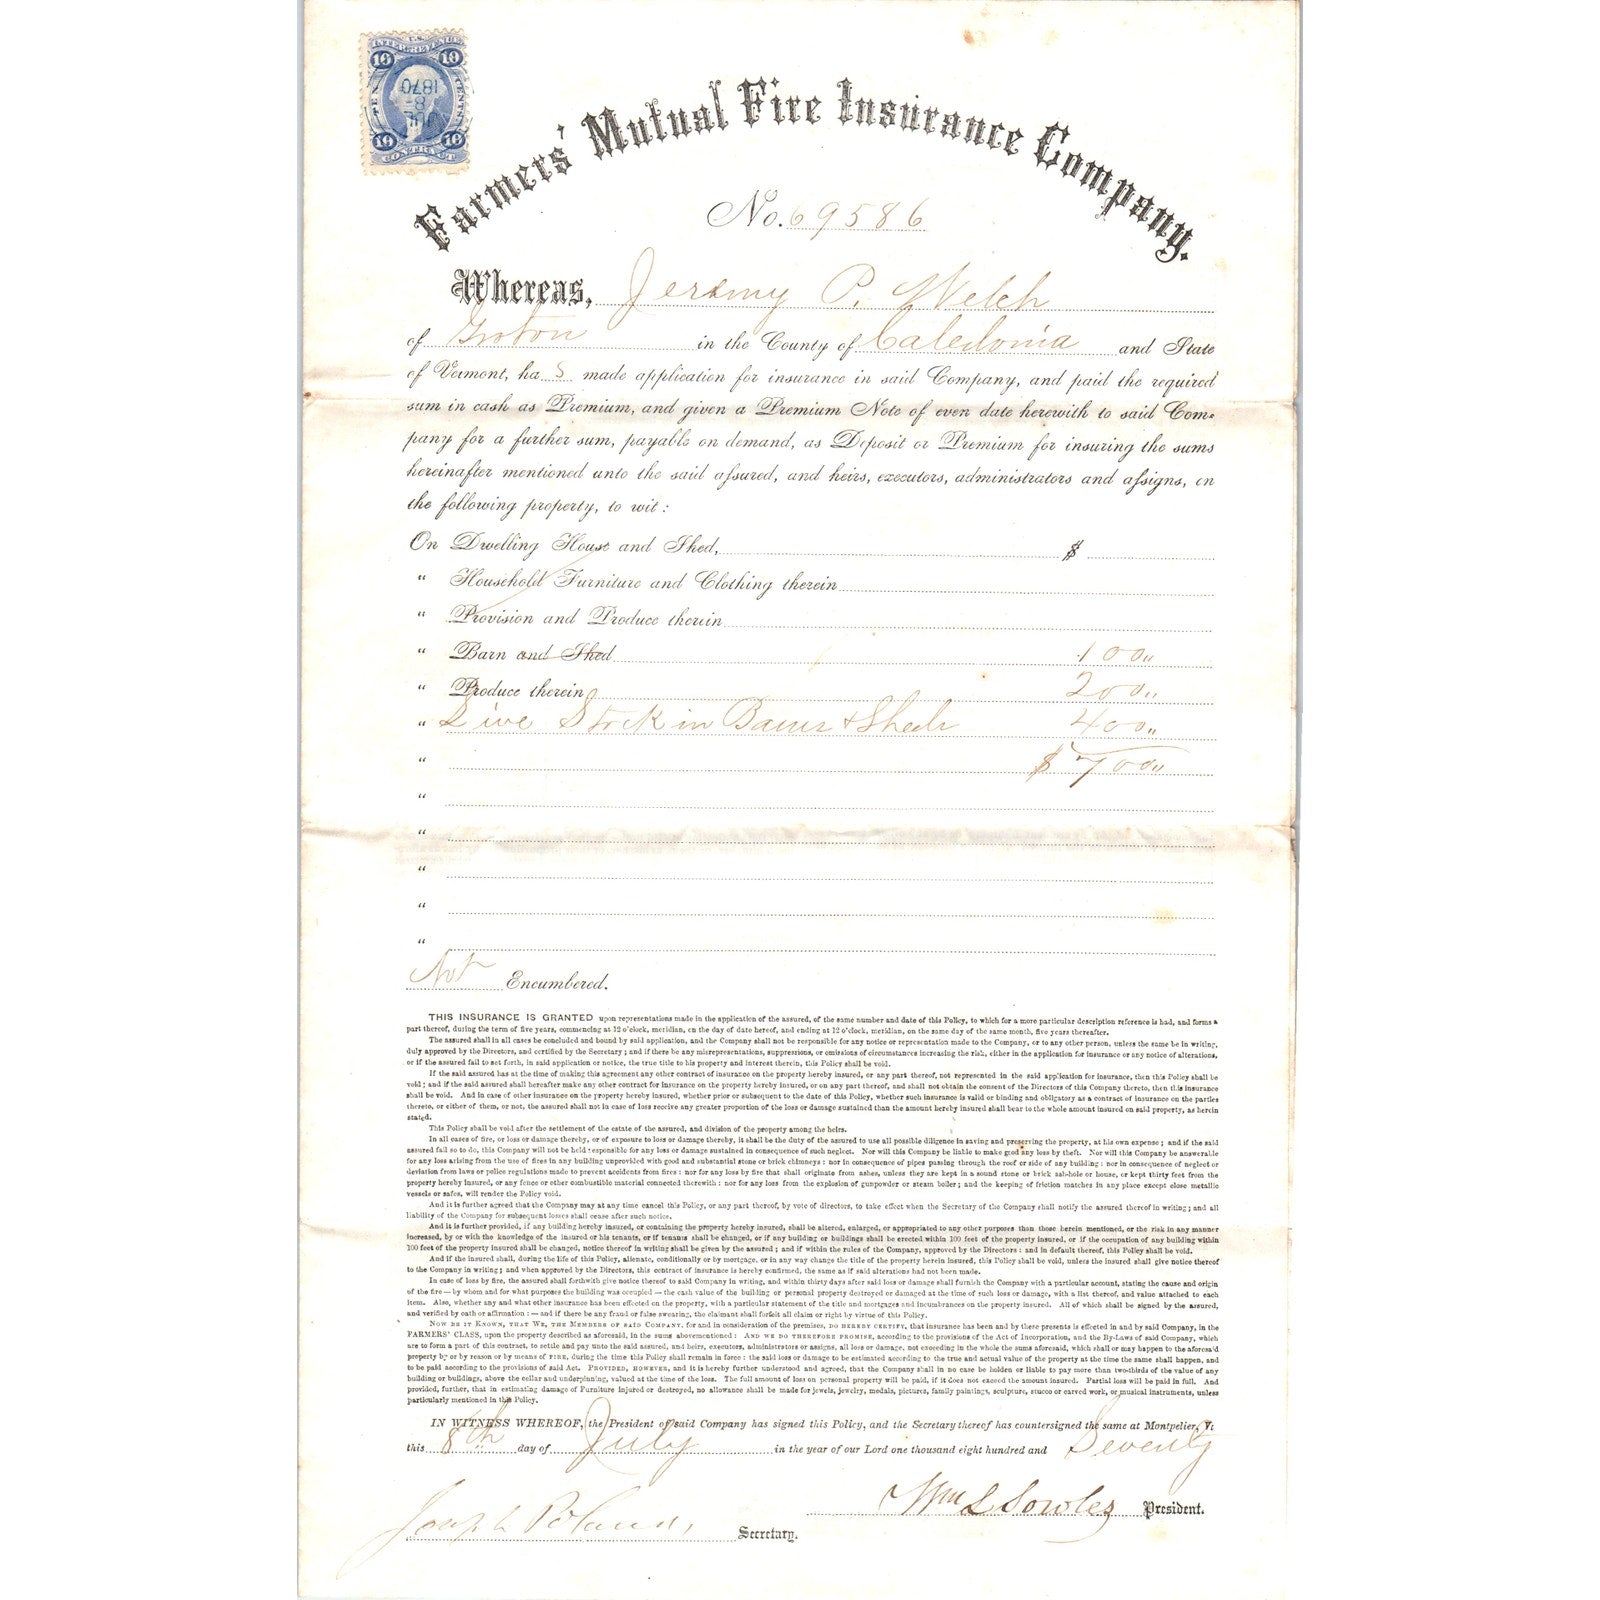 U.S.
INTER. REVENUE
10 10
TEN CENTS
JUL
8-
1870
10 10
CONTRACT
Farmers' Mutual Fire Insurance Company.
No. 69586
Whereas, Jeremy P. Welch
of Groton in the County of Caledonia and State
of Vermont, ha s made application for insurance in said Company, and paid the required
sum in cash as Premium, and given a Premium Note of even date herewith to said Com-
pany for a further sum, payable on demand, as Deposit or Premium for insuring the sums
hereinafter mentioned unto the said assured, and heirs, executors, administrators and assigns, on
the following property, to wit:
On Dwelling House and Shed, $
" Household Furniture and Clothing therein
" Provision and Produce therein
" Barn and Shed 100"
" Produce therein 200"
" Live Stock in Barns & Sheds 400"
" $ 700"
"
"
"
"
"
Not Encumbered.
THIS INSURANCE IS GRANTED upon representations made in the application of the assured, of the same number and date of this Policy, to which for a more particular description reference is had, and forms a
part thereof, during the term of five years, commencing at 12 o'clock, meridian, on the day of date hereof, and ending at 12 o'clock, meridian, on the same day of the same month, five years thereafter.
The assured shall in all cases be concluded and bound by said application, and the Company shall not be responsible for any notice or representation made to the Company, or to any other person, unless the same be in writing,
duly approved by the Directors, and certified by the Secretary; and if there be any misrepresentations, suppressions, or omissions of circumstances increasing the risk, either in the application for insurance or any notice of alterations,
or if the assured fail to set forth, in said application or notice, the true title to his property and interest therein, this Policy shall be void.
If the said assured has at the time of making this agreement any other contract of insurance on the property hereby insured, or any part thereof, not represented in the said application for insurance, then this Policy shall be
void; and if the said assured shall hereafter make any other contract for insurance on the property hereby insured, or on any part thereof, and shall not obtain the consent of the Directors of this Company thereto, then this insurance
shall be void. And in case of other insurance on the property hereby insured, whether prior or subsequent to the date of this Policy, whether such insurance is valid or binding and obligatory as a contract of insurance on the parties
thereto, or either of them, or not, the assured shall not in case of loss receive any greater proportion of the loss or damage sustained than the amount hereby insured shall bear to the whole amount insured on said property, as herein
stated.
This Policy shall be void after the settlement of the estate of the assured, and division of the property among the heirs.
In all cases of fire, or loss or damage thereby, or of exposure to loss or damage thereby, it shall be the duty of the assured to use all possible diligence in saving and preserving the property, at his own expense; and if the said
assured fail so to do, this Company will not be held responsible for any loss or damage sustained in consequence of such neglect. Nor will this Company be liable to make good any loss by theft. Nor will this Company be answerable
for any loss arising from the use of fires in any building unprovided with good and substantial stone or brick chimneys: nor in consequence of pipes passing through the roof or side of any building: nor in consequence of neglect or
deviation from laws or police regulations made to prevent accidents from fires: nor for any loss by fire that shall originate from ashes, unless they are kept in a sound stone or brick ash-hole or house, or kept thirty feet from the
property hereby insured, or any fence or other combustible material connected therewith: nor for any loss from the explosion of gunpowder or steam boiler; and the keeping of friction matches in any place except close metallic
vessels or safes, will render the Policy void.
And it is further agreed that the Company may at any time cancel this Policy, or any part thereof, by vote of directors, to take effect when the Secretary of the Company shall notify the assured thereof in writing; and all
liability of the Company for subsequent losses shall cease after such notice.
And it is further provided, if any building hereby insured, or containing the property hereby insured, shall be altered, enlarged, or appropriated to any other purposes than those herein mentioned, or the risk in any manner
increased, by or with the knowledge of the insured or his tenants, or if tenants shall be changed, or if any building or buildings shall be erected within 100 feet of the property insured, or if the occupation of any building within
100 feet of the property insured shall be changed, notice thereof in writing shall be given by the assured; and if within the rules of the Company, approved by the Directors: and in default thereof, this Policy shall be void.
And if the insured shall, during the life of this Policy, alienate, conditionally or by mortgage, or in any way change the title of the property herein insured, this Policy shall be void, unless the insured shall give notice thereof
to the Company in writing; and when approved by the Directors, this contract of insurance is hereby confirmed, the same as if said alterations had not been made.
In case of loss by fire, the assured shall forthwith give notice thereof to said Company in writing, and within thirty days after said loss or damage shall furnish the Company with a particular account, stating the cause and origin
of the fire — by whom and for what purposes the building was occupied — the cash value of the building or personal property destroyed or damaged at the time of such loss or damage, with a list thereof, and value attached to each
item. Also, whether any and what other insurance has been effected on the property, with a particular statement of the title and mortgages and incumbrances on the property insured. All of which shall be signed by the assured,
and verified by oath or affirmation: — and if there be any fraud or false swearing, the claimant shall forfeit all claim or right by virtue of this Policy.
NOW BE IT KNOWN, THAT WE, THE MEMBERS OF SAID COMPANY, for and in consideration of the premises, DO HEREBY CERTIFY, that insurance has been and by these presents is effected in and by said Company, in the
FARMERS' CLASS, upon the property described as aforesaid, in the sums abovementioned: AND WE DO THEREFORE PROMISE, according to the provisions of the Act of Incorporation, and the By-Laws of said Company, which
are to form a part of this contract, to settle and pay unto the said assured, and heirs, executors, administrators or assigns, all loss or damage, not exceeding in the whole the sums aforesaid, which shall or may happen to the aforesaid
property by or by reason or by means of FIRE, during the time this Policy shall remain in force: the said loss or damage to be estimated according to the true and actual value of the property at the time the same shall happen, and
to be paid according to the provisions of said Act. PROVIDED, HOWEVER, and it is hereby further understood and agreed, that the Company shall in no case be holden or liable to pay more than two-thirds of the value of any
building or buildings, above the cellar and underpinning, valued at the time of the loss. The full amount of loss on personal property will be paid, if it does not exceed the amount insured. Partial loss will be paid in full. And
provided, further, that in estimating damage of Furniture injured or destroyed, no allowance shall be made for jewels, jewelry, medals, pictures, family paintings, sculpture, stucco or carved work, or musical instruments, unless
particularly mentioned in this Policy.
IN WITNESS WHEREOF, the President of said Company has signed this Policy, and the Secretary thereof has countersigned the same at Montpelier, Vt
this 8th day of July in the year of our Lord one thousand eight hundred and Seventy
Wm L Sowles President.
Joseph Poland, Secretary.